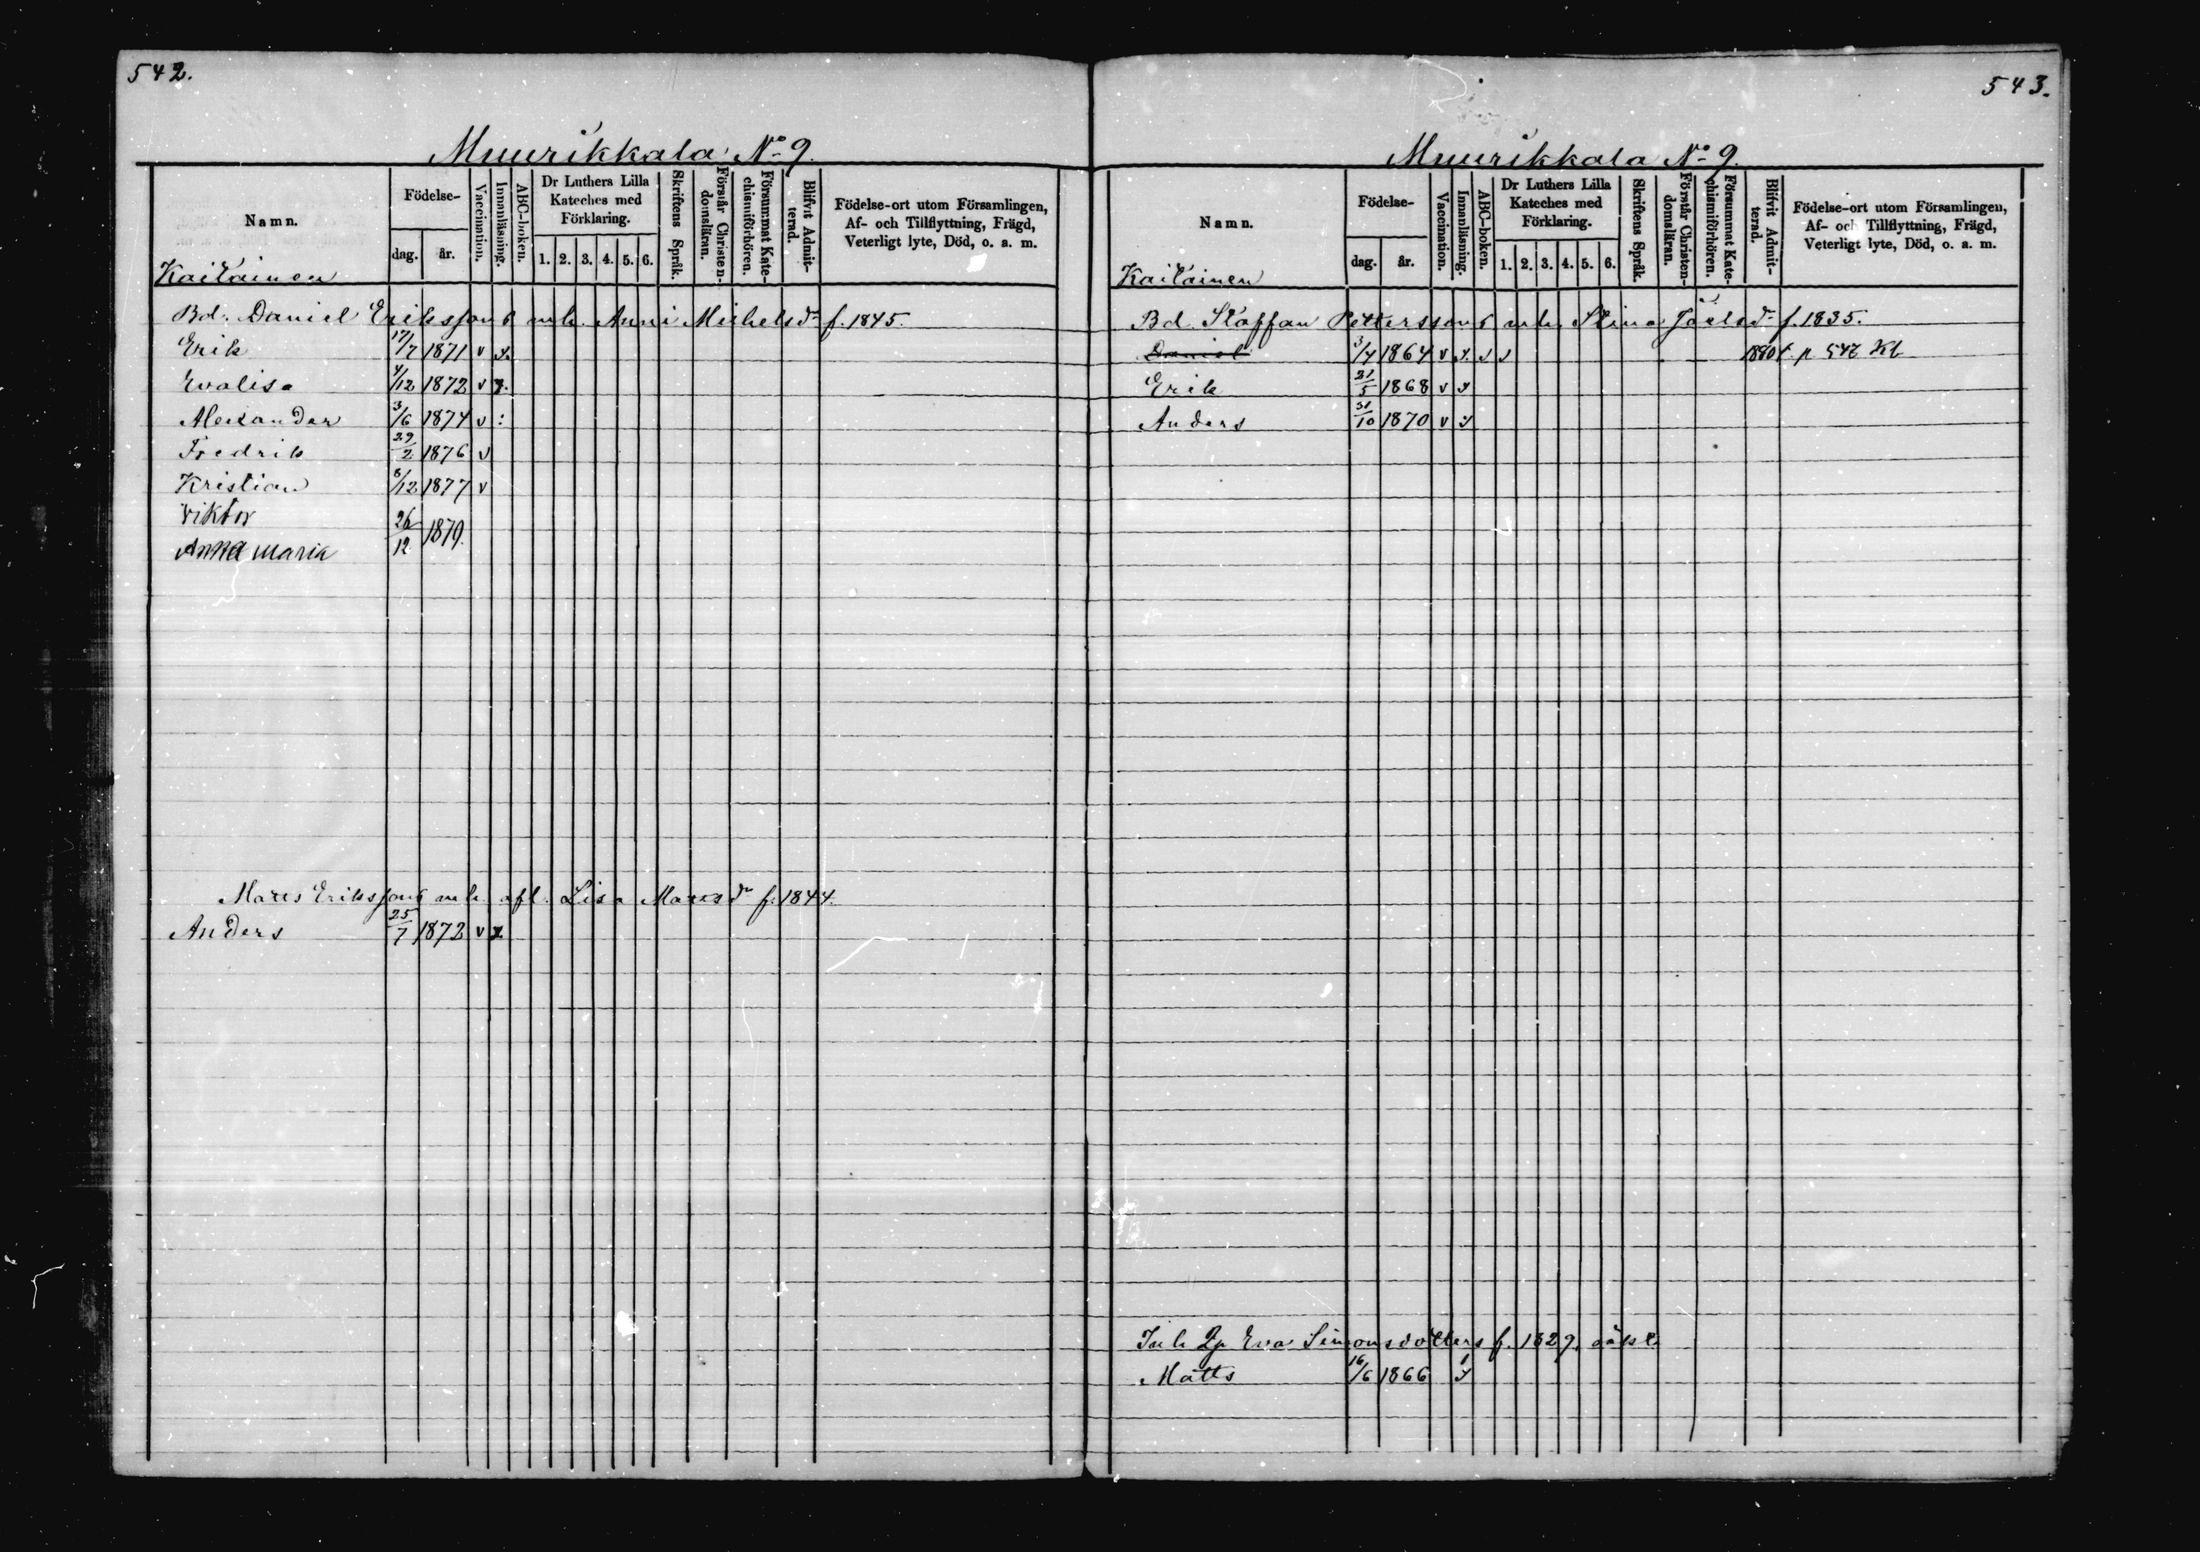 542.
Muurikkala No 9.
Namn.
Födelse-
dag.
år.
Vaccination.
Innanläsning.
ABC-boken.
Dr Luthers Lilla
Kateches med
Förklaring.
1. 2. 3. 4. 5. 6.
Skriftens Språk.
Förstår Christen-
domsläran.
Försummat Kate-
chismiförhören.
Blifvit Admit-
terad.
Födelse-ort utom Församlingen,
Af- och Tillflyttning, Frägd,
Veterligt lyte, Död, o. a. m.
Kaitainen
Bd. Daniel Erikssons mh. Anni Michelsdr f. 1845.
Erik 17/7 1871 v x.
Evalisa 4/12 1872 v x.
Alexander 3/6 1874 v :
Fredrik 29/2 1876 v
Kristian 8/12 1877 v
Viktor 26/12 1879.
Anna Maria
Matts Erikssons mh. afl. Lisa Mattsdr f. 1844.
Anders 25/7 1872 v x
543.
Muurikkala No 9.
Namn.
Födelse-
dag.
år.
Vaccination.
Innanläsning.
ABC-boken.
Dr Luthers Lilla
Kateches med
Förklaring.
1. 2. 3. 4. 5. 6.
Skriftens Språk.
Förstår Christen-
domsläran.
Försummat Kate-
chismiförhören.
Blifvit Admit-
terad.
Födelse-ort utom Församlingen,
Af- och Tillflyttning, Frägd,
Veterligt lyte, Död, o. a. m.
Kaitainen
Bd. Staffan Petterssons mh. Stina Joelsdr f. 1835.
Daniel 3/4 1864 v x. v v 1880 f. p 542 Kb
Erik 21/5 1868 v x
Anders 31/10 1870 v x
Inh Eva Simonsdotters f. 1829, oäkt.
Matts 16/6 1866 x